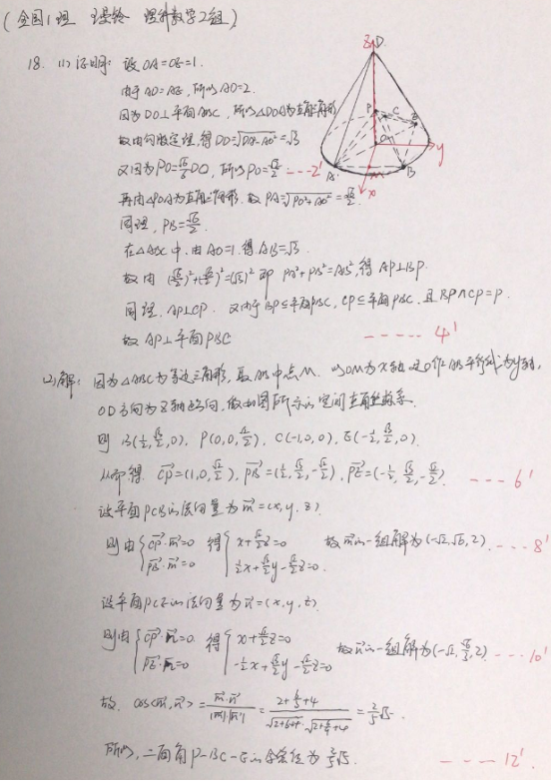 (全国1理 理科数学2组)
18. (1) 证明: 设OA=OE=1.
由于AD=AE, 所以AD=2.
因为DO⊥平面ABC, 所以△DOA为直角三角形
故由勾股定理, 得DO=√(DA²-AO²)=√3
又因为PO=√6/6 DO, 所以PO=√2/2 ---2'
再由△POA为直角三角形. 故PA=√(PO²+AO²)=√6/2.
同理, PB=√6/2.
在△ABC中, 由AO=1, 得AB=√3.
故由 (√6/2)²+(√6/2)²=(√3)² 即 PA²+PB²=AB², 得AP⊥BP.
同理, AP⊥CP. 又由于BP⊆平面PBC, CP⊆平面PBC, 且BP∩CP=P.
故AP⊥平面PBC ----- 4'
(2) 解: 因为△ABC为等边三角形, 取AB中点M. 以OM为x轴 过O作AB平行线为y轴,
OD方向为z轴方向, 做如图所示的空间直角坐标系.
则 B(½, √3/2, 0), P(0,0,√2/2), C(-1,0,0), E(-½, √3/2, 0).
从而得. CP=(1,0,√2/2), PB=(½, √3/2, -√2/2), PE=(-½, √3/2, -√2/2). --- 6'
设平面PCB的法向量为m=(x,y,z)
则由 {CP·m=0 PB·m=0 得 {x+√2/2z=0 ½x+√3/2y-√2/2z=0. 故m的一组解为(-√2,√6,2). ---8'
设平面PCE的法向量为n=(x,y,z)
则由 {CP·n=0 PE·n=0 得 {x+√2/2z=0 -½x+√3/2y-√2/2z=0 故n的一组解为(-√2, √6/3, 2) --- 10'
故. cos<m,n>=m·n/|m||n|=(2+6/3+4)/(√(2+6+4)·√(2+6/9+4))=2/5√5.
所以, 二面角P-BC-E的余弦值为2/5√5. --- 12'
z D.
P C E
O y
A M B
x